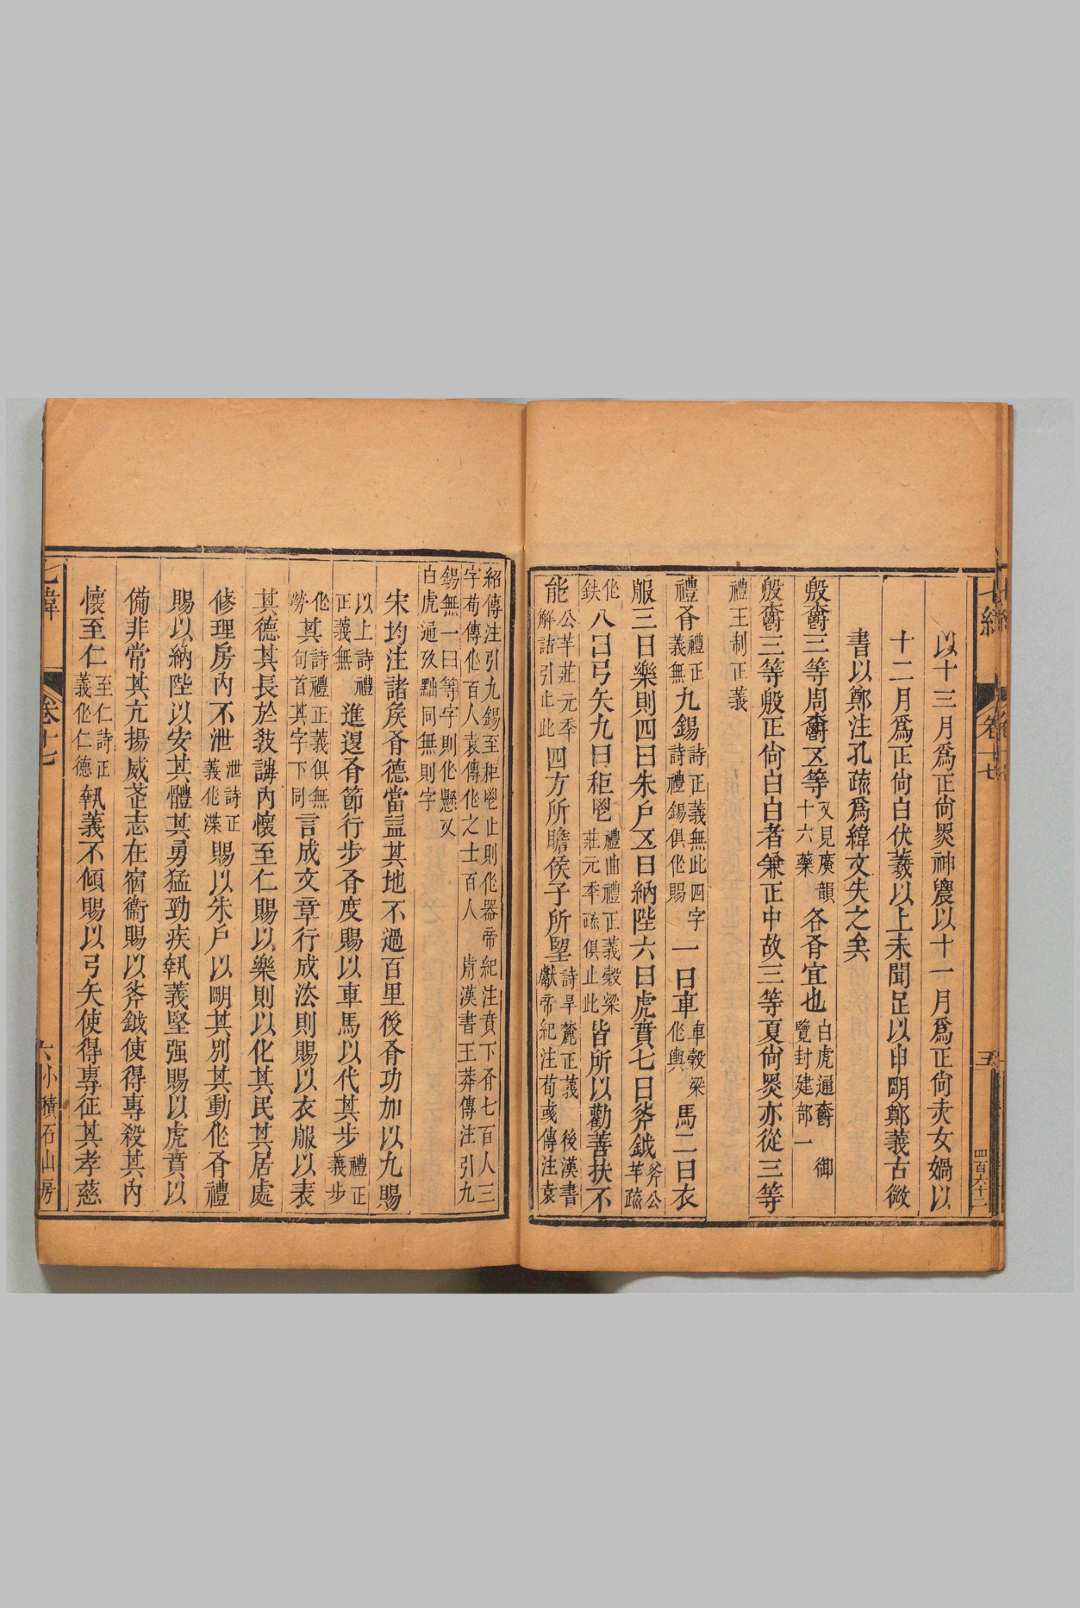 以十三月爲正尙黑神農以十一月爲正尙赤女媧以
十二月爲正尙白伏羲以上未聞足以申明鄭義古微
書以鄭注孔疏爲緯文失之矣
殷爵三等周爵五等又見廣韻十六藥各有宜也白虎通爵 御覽封建部一
殷爵三等殷正尙白白者兼正中故三等夏尙黑亦從三等
禮王制正義
禮有禮正義無九錫詩正義無此四字詩禮錫俱作賜一曰車車穀梁作輿馬二曰衣
服三曰樂則四曰朱戶五曰納陛六曰虎賁七曰斧鉞斧公羊疏
作鈇八曰弓矢九曰秬鬯禮曲禮正義穀梁莊元年疏俱止此皆所以勸善扶不
能公羊莊元年解詁引止此四方所瞻侯子所望詩旱麓正義 後漢書獻帝紀注荀彧傳注袁
紹傳注引九錫至秬鬯止則作器帝紀注賁下有七百人三
字荀傳作百人袁傳作之士百人 前漢書王莽傳注引九
錫無一曰等字則作懸 又
白虎通攷黜同無則字
宋均注諸矦有德當益其地不過百里後有功加以九賜
以上詩禮正義無進退有節行步有度賜以車馬以代其步禮正義步
作勞其詩禮正義俱無句首其字下同言成文章行成法則賜以衣服以表
其德其長於敎誨內懷至仁賜以樂則以化其民其居處
修理房內不泄泄詩正義作渫賜以朱戶以明其別其動作有禮
賜以納陛以安其體其勇猛勁疾執義堅强賜以虎賁以
備非常其亢揚威武志在宿衞賜以斧鉞使得專殺其內
懷至仁至仁詩正義作仁德執義不傾賜以弓矢使得專征其孝慈
七緯
卷十七
六
小積石山房
七緯
卷十七
五
四百六十二